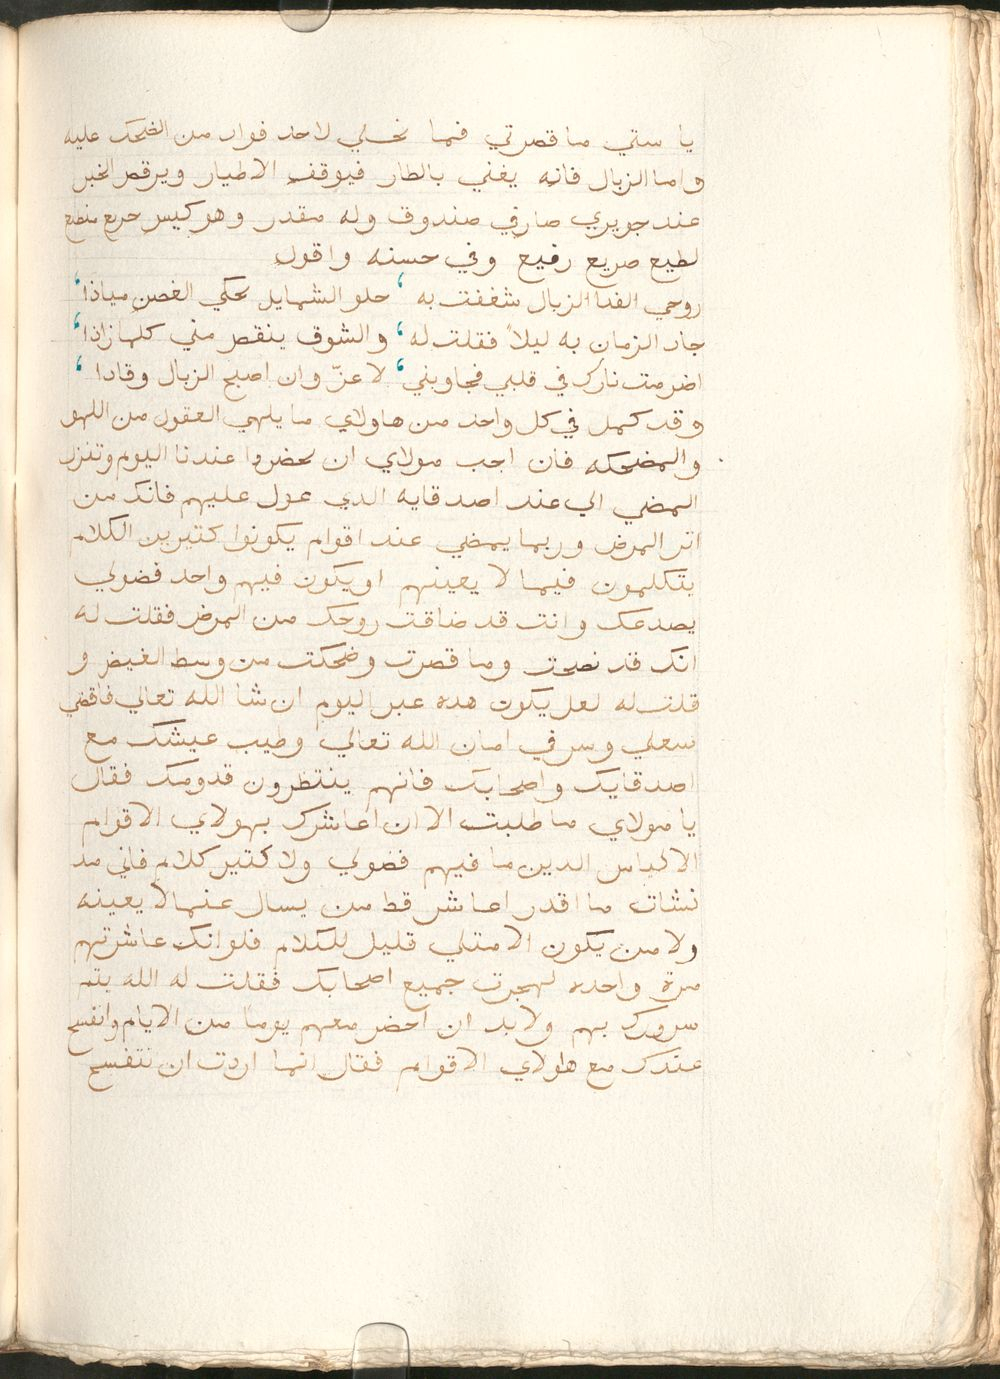 يا ستي ما قصرتي فما نخلي لاحد فواد من الضحك عليه
واما الزبال فانه يغني بالطار فيوقف الاطيار ويرقص الخبر
عند جويري صار في صندوق وله مقدر وهو كيس حريع منطع
لطيع صريع رفيع وفي حسنه واقول
روحي الفدا الزبال شغفت به ، حلو الشمايل يحكي الغصن مياذا ،
جاد الزمان به ليلاً فقلت له ، والشوق ينقص مني كلما زاذا ،
اضرمت نارك في قلبي فجاوبني ، لا عزّ وان اصبح الزبال وقاذا ،
وقد كمل في كل واحد من هاولاي ما يلهي العقول من اللهو
والمضحكه فان احب مولاي ان يحضروا عندنا اليوم وتنزل
المضي الي عند اصدقايه الدي عول عليهم فانك من
اتر المرض وربما يمضي عند اقوام يكونوا كتيرين الكلام
يتكلمون فيما لا يعينهم او يكون فيهم واحد فضولي
يصدعك وانت قد ضاقت روحك من المرض فقلت له
انك قد نصحت وما قصرت وضحكت من وسط الغيض و
قلت له لعل يكون هده عبر اليوم ان شا الله تعالي فاقضي
سعلي وسر في امان الله تعالي وطيب عيشك مع
اصدقايك واصحابك فانهم ينتظرون قدومك فقال
يا مولاي ما طلبت الا ان اعاشرك بهولاي الاقوام
الاكياس الدين ما فيهم فضولي ولا كتير كلام فاني مد
نشات ما اقدر اعاشر قط من يسال عنما لا يعينه
ولا من يكون الا متلي قليل للكلام فلو انك عاشرتهم
مرة واحده لهجرت جميع اصحابك فقلت له الله يتم
سرورك بهم ولا بد ان احضر معهم يوماً من الايام واتفسح
عندك مع هاولاي الاقوام فقال انما اردت ان تتفسح